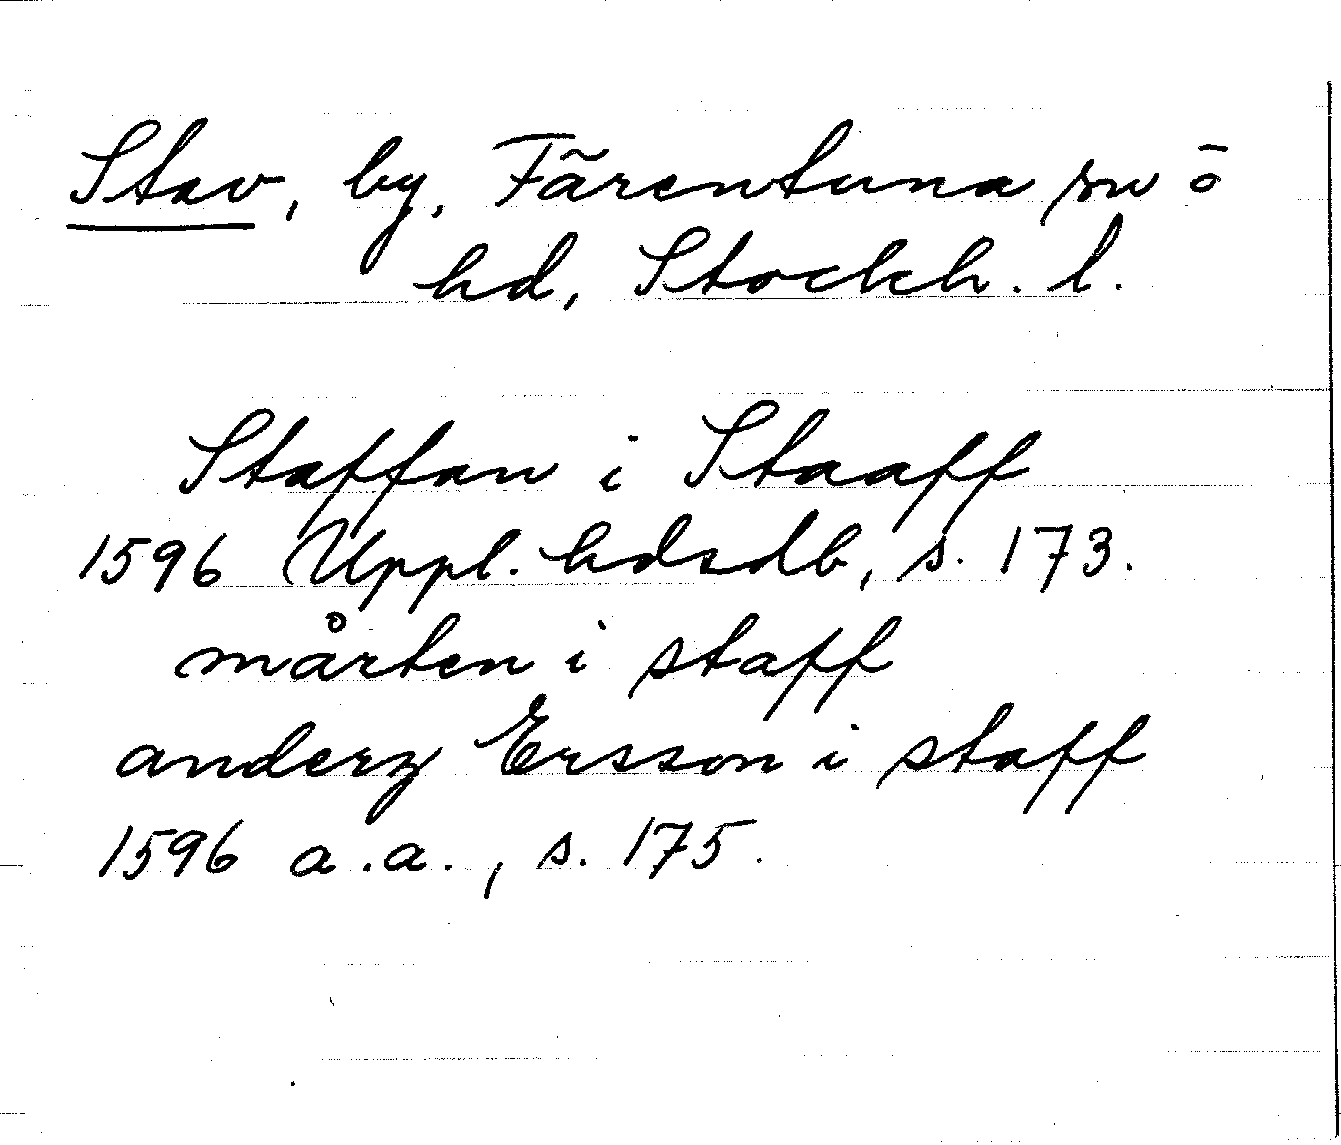 Stav, by, Färentuna sn o
hd, Stockh. l.
Staffan i Staaff
1596 Uppl. hdsdb, s. 173.
mårten i staff
anderz Ersson i staff
1596 a.a., s. 175.